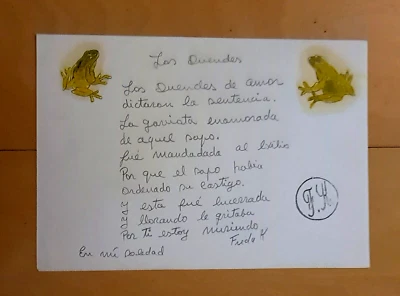 Los Duendes
Los Duendes de amor
dictaron la sentencia.
La gaviota enamorada
de aquel sapo.
fué mandadada al exilio
Por que el sapo había
ordenado su castigo.
y esta fué encerrada
y llorando le gritaba
Por ti estoy muriendo.
Frida K
En mi soledad
F.K